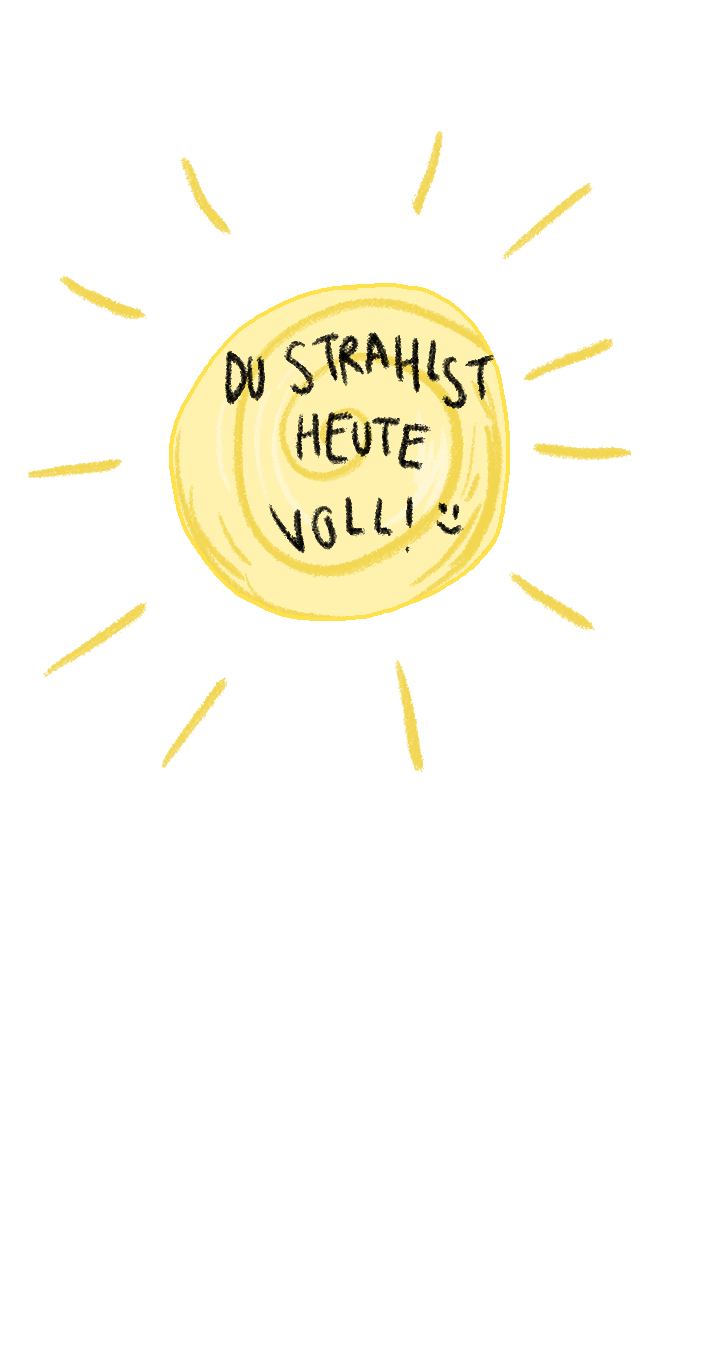 DU STRAHLST
HEUTE
VOLL! :)